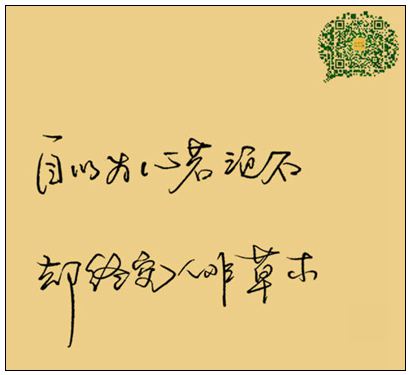 自以为心若泥石
却终究人非草木